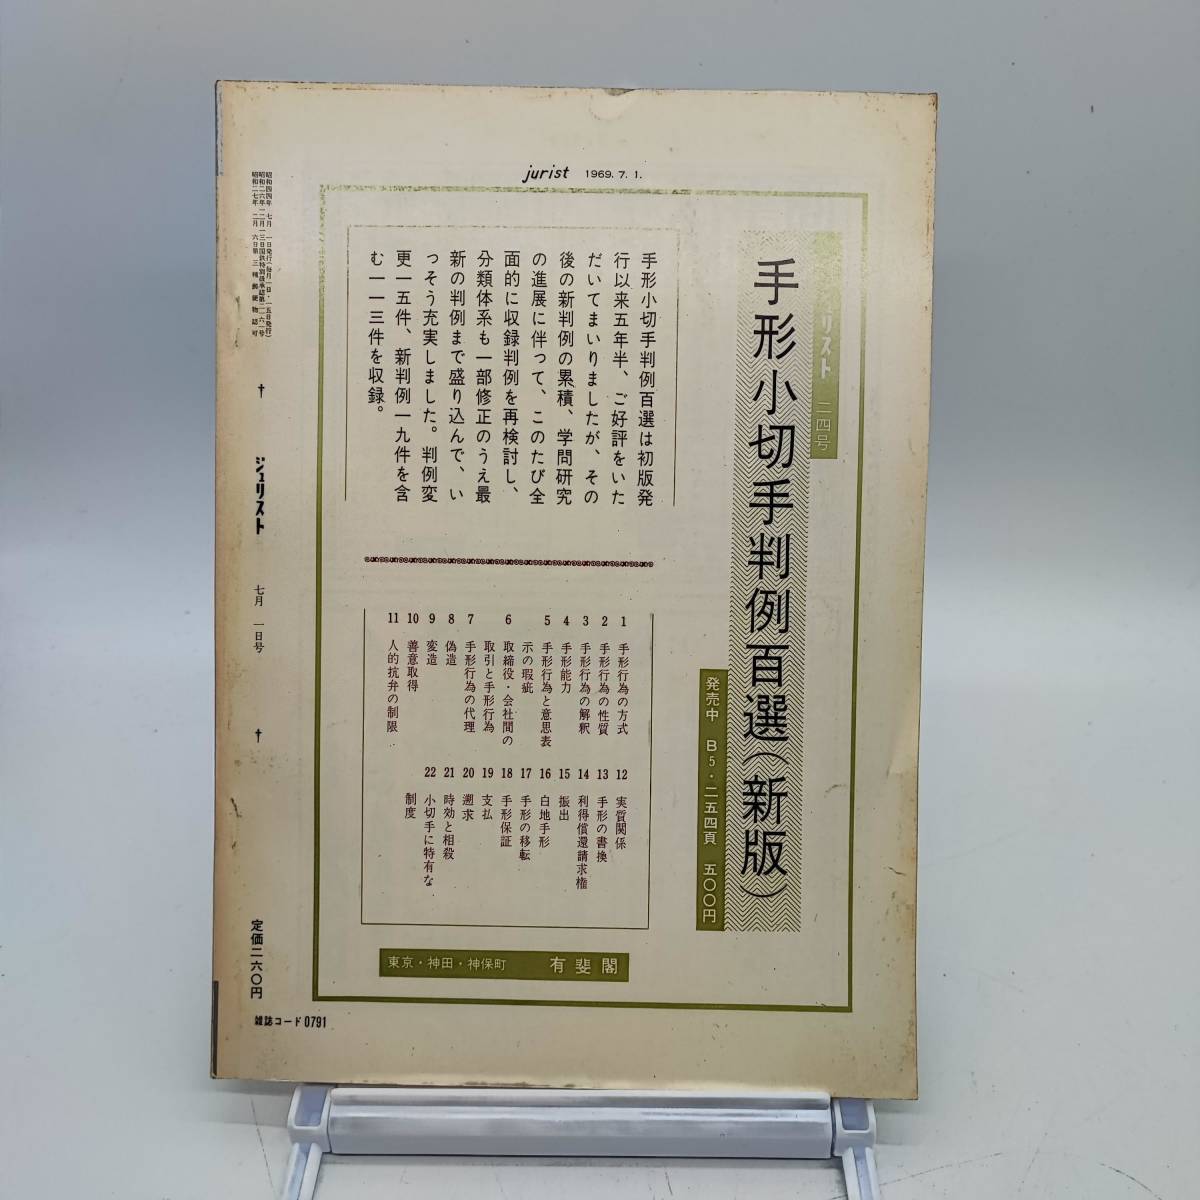 jurist 1969. 7. 1.
リスト 二四号
手形小切手判例百選(新版)
発売中 B5・二五四頁 五〇〇円
手形小切手判例百選は初版発
行以来五年半、ご好評をいた
だいてまいりましたが、その
後の新判例の累積、学問研究
の進展に伴って、このたび全
面的に収録判例を再検討し、
分類体系も一部修正のうえ最
新の判例まで盛り込んで、い
っそう充実しました。判例変
更一五件、新判例一九件を含
む一一三件を収録。
1 手形行為の方式
2 手形行為の性質
3 手形行為の解釈
4 手形能力
5 手形行為と意思表
示の瑕疵
6 取締役・会社間の
取引と手形行為
7 手形行為の代理
8 偽造
9 変造
10 善意取得
11 人的抗弁の制限
12 実質関係
13 手形の書換
14 利得償還請求権
15 振出
16 白地手形
17 手形の移転
18 手形保証
19 支払
20 遡求
21 時効と相殺
22 小切手に特有な
制度
東京・神田・神保町 有斐閣
昭和四四年 七月 一日発行(毎月一日・一五日発行)
昭和二六年一二月一三日国鉄特別扱承認第二一六一号
昭和二七年 二月 六日第三種郵便物認可
† ジュリスト 七月 一日号 †
定価二六〇円
雑誌コード 0791